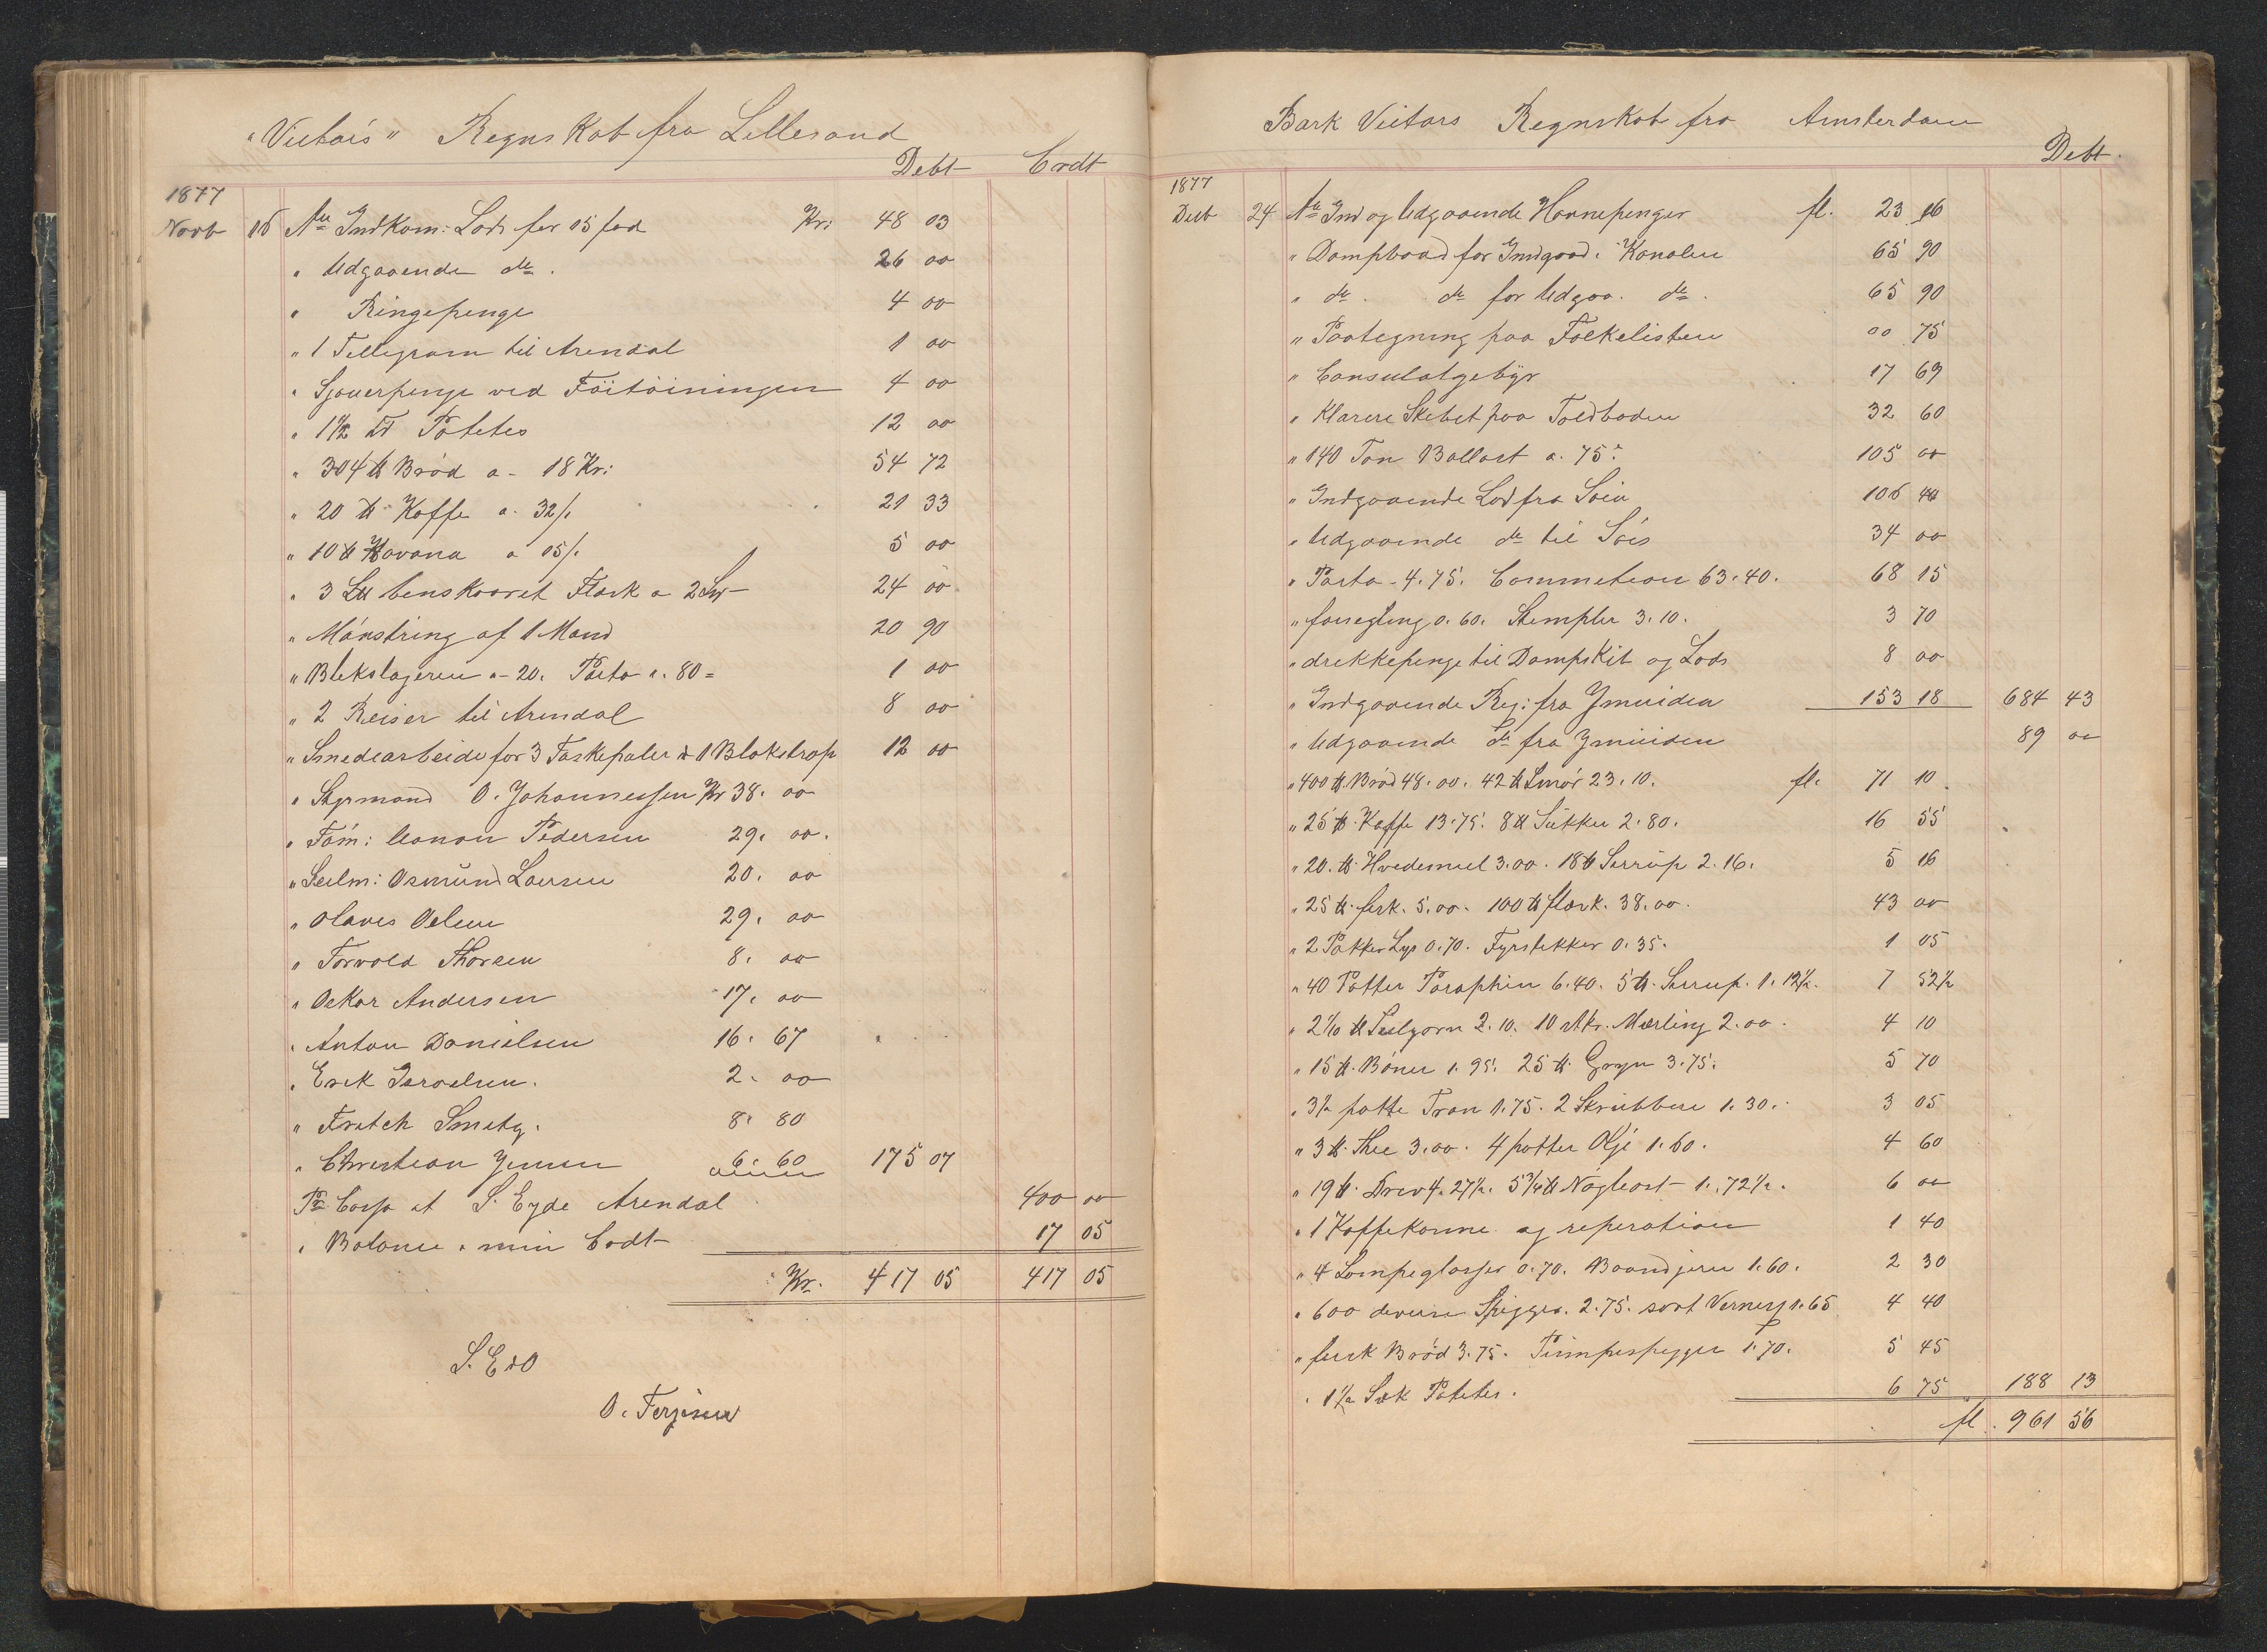 "Victois" Regnskab fra Lillesand
Debt Crdt
1877
Novb 16 An Indkom: Lods for 15 fod Kr: 48 03
" Udgaaende do. 26 00
" Ringepenge 4 00
" 1 Tellegram til Arendal 1 00
" Sjouerpenge ved Föitöiningen 4 00
" 1½ Tr Potetes 12 00
" 304 ℔ Bröd a - 18 Kr: 54 72
" 20 ℔ Kaffe a. 32/. 21 33
" 10 ℔ Havana a 15/. 5 00
" 3 L℔ benskaaret Flæsk a 2 24 00
" Mönstring af 1 Mand 20 90
" Blekslageren a - 20. Porto a. 80 = 1 00
" 2 Reiser til Arendal 8 00
" Smedearbeide for 3 Taskepaler & 1 Blokstrop 12 00
" Styrmand O. Johannessen Kr 38. 00
" Töm: Aanon Pedersen 29. 00.
" Seilm: Osmünd Larsen 20. 00
" Olaves Oelsen 29. 00
" Torvald Thorsen 8. 00
" Oskar Andersen 17. 00
" Anton Danielsen 16. 67
" Erik Israelsen. 2. 00
" Fretch Smetg. 8. 80
" Christian Jensen 6. 60 175 07
Pr Cassa at S. Eyde Arendal 400 00
" Balance i min Crdt 17 05
Kr. 417 05 417 05
S. E & O
O. Terjesen
Bark Victors Regnskab fra Amsterdam
Debt.
1877
Decb 24 An Ind og Udgaaende Havnepenger fl. 23 16
" Dampbaad for Indgaa. i Kanalen 65 90
" do. do for Udgaa. do. 65 90
" Paategning paa Folkelisten 00 75
" Consulatgebÿr 17 69
" Klarere Skebet paa Toldboden 32 60
" 140 Ton Ballast a. 75 c 105 00
" Indgaaende Lods fra Söen 106 40
" Udgaaende do til Söis 34 00
" Porto - 4.75. Commetion 63.40. 68 15
" forsegling 0.60. Stempler 3.10. 3 70
" drekkepenge til Dampskib og Lods 8 00
" Indgaaende Reg: fra Ymuiden 153 18 684 43
" Udgaaende do fra Ymuiden 89 00
" 400 ℔ Bröd 48.00. 42 ℔ Smör 23.10. fl. 71 10
" 25 ℔. Kaffe 13.75. 8 ℔ Sükker 2.80. 16 55
" 20. ℔. Hvedemeel 3.00. 18 ℔ Serrüp 2.16. 5 16
" 25 ℔. fesk. 5.00. 100 ℔ flæsk. 38.00. 43 00
" 2 Pakker Lys 0.70. Fyrstekker 0.35. 1 05
" 40 Potter Paraphin 6.40. 5 ℔. Serrup. 1.12½. 7 52½
" 2 1/10 ℔ Seilgarn 2.10. 10 stk. Merling 2.00. 4 10
" 15 ℔. Böner 1.95. 25 ℔. Gryn 3.75. 5 70
" 3½ potte Tran 1.75. 2 Skrubbere 1.30. 3 05
" 3 ℔. Thee 3.00. 4 potter Olje 1.60. 4 60
" 19 ℔. Drev 4.27½. 5¾ ℔ Nögleost 1.72½. 6 00
" 1 Kaffekanne og reperation 1 40
" 4 Lampeglasser 0.70. Baandjern 1.60. 2 30
" 600 deverse Speggers. 2.75. sort Verness 1.65 4 40
" fersk Bröd 3.75. Pümpespegger 1.70. 5 45
" 1½ Sæk Potetes. 6 75 188 13
fl. 961 56